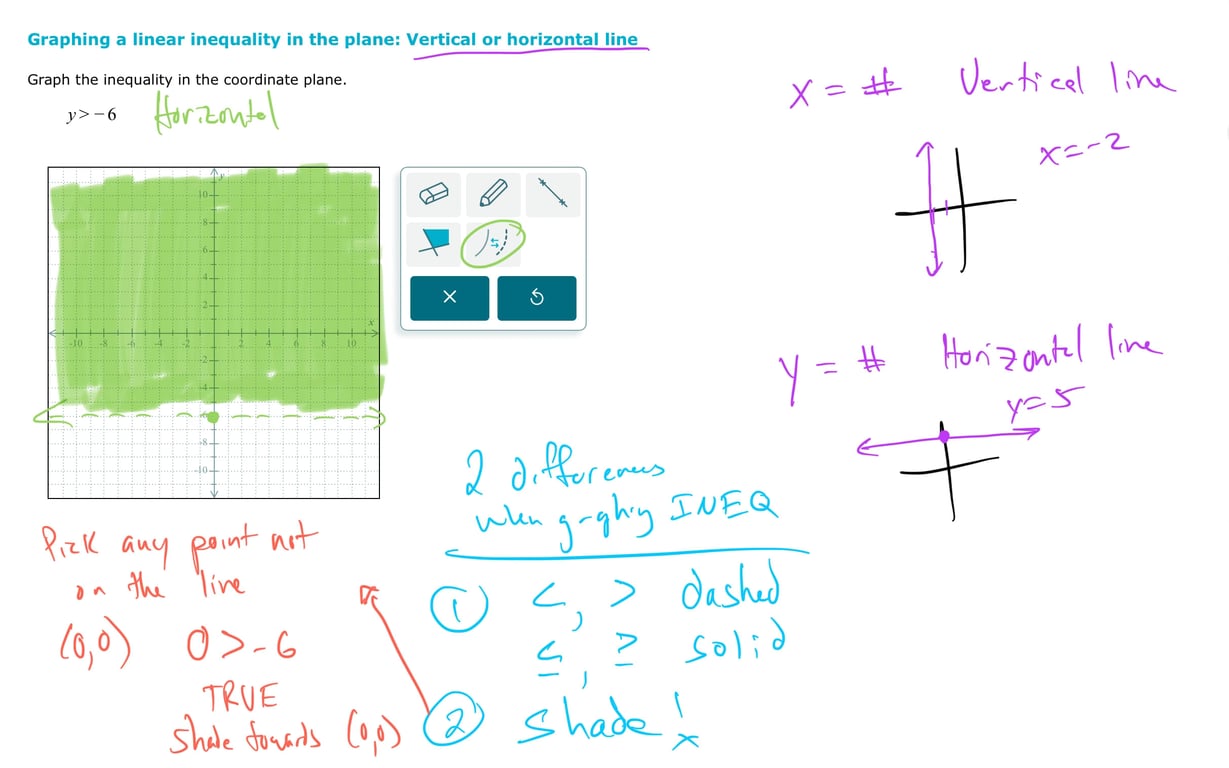 Graphing a linear inequality in the plane: Vertical or horizontal line
Graph the inequality in the coordinate plane.
y > −6 Horizontal
y
10
8
6
4
2
x
-10 -8 -6 -4 -2 2 4 6 8 10
-2
-4
-6
-8
-10
x = # Vertical line
x=-2
y = # Horizontal line
y=5
2 differences
when g-ghing INEQ
1 <, > dashed
≤, ≥ solid
2 Shade!
Pick any point not
on the line
(0,0) 0 > -6
TRUE
Shade towards (0,0)